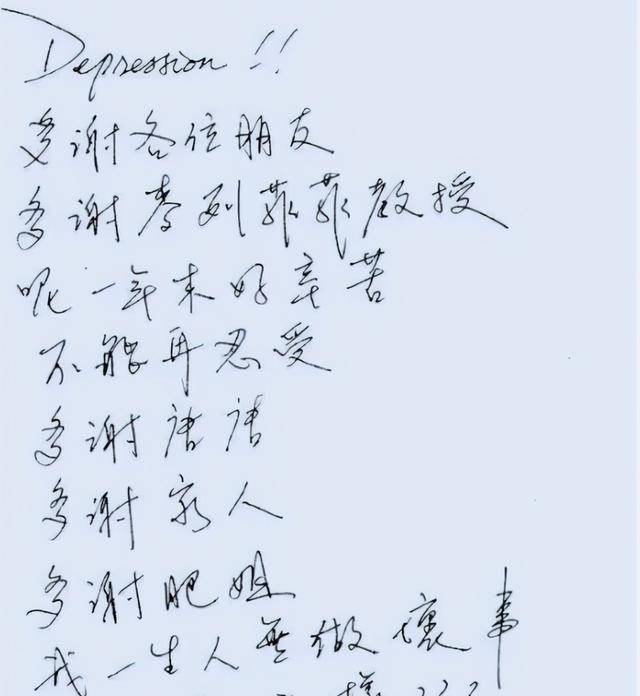 Depression!!
多謝各位朋友
多謝麥列菲菲教授
呢一年來好辛苦
不能再忍受
多謝唐唐
多謝家人
多謝肥姐
我一生人無做壞事
樣???